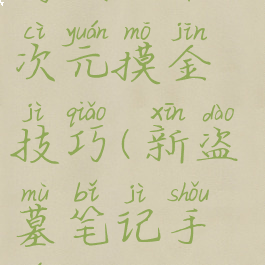 cì yuán mō jīn
次元摸金
jì qiǎo xīn dào
技巧(新盗
mù bǐ jì shǒu
墓笔记手